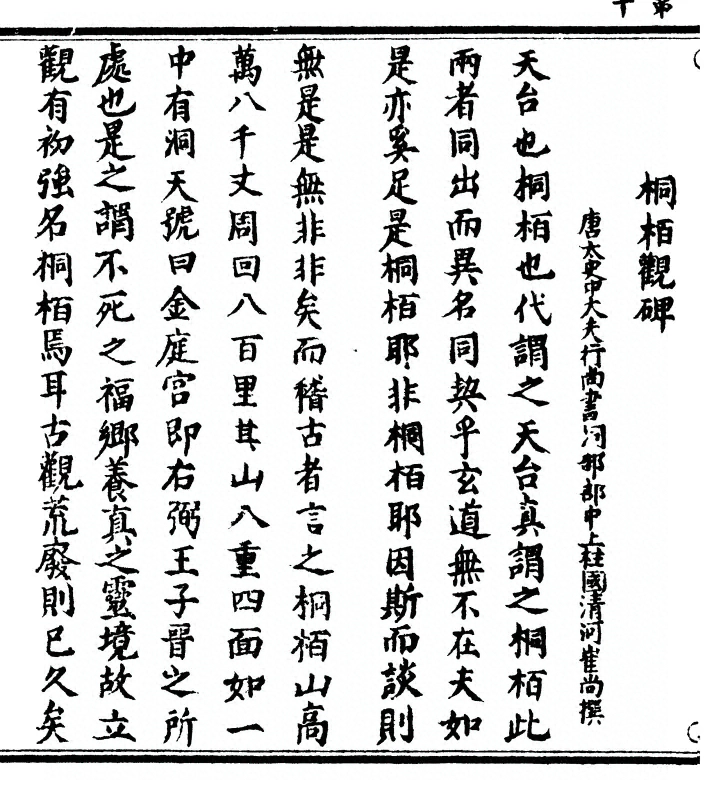 第
十
桐栢觀碑
唐太史中大夫行尚書祠部郎中上柱國清河崔尚撰
天台也桐栢也代謂之天台真謂之桐栢此
兩者同出而異名同契乎玄道無不在夫如
是亦奚足是桐栢耶非桐栢耶因斯而談則
無是是無非非矣而稽古者言之桐栢山高
萬八千丈周回八百里其山八重四面如一
中有洞天號曰金庭宮即右弼王子晉之所
處也是之謂不死之福鄉養真之靈境故立
觀有初強名桐栢焉耳古觀荒廢則已久矣